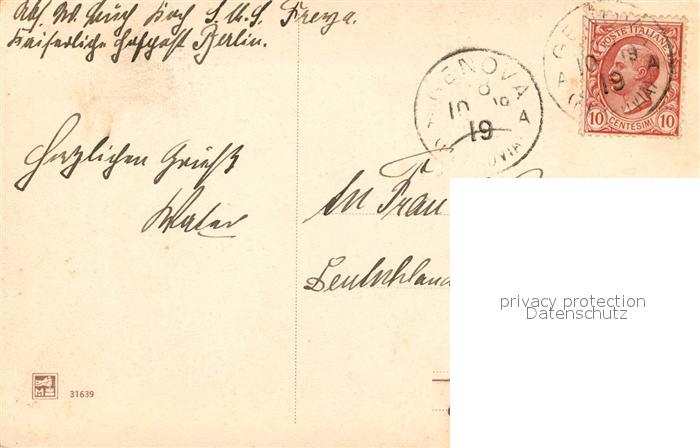 Abs. W. Buch S.M.S. Freya.
Kaiserliche Hofpost Berlin.
GENOVA
10
19
A
GENOVA
10 19 A
A
19
POSTE ITALIANE
10 CENTESIMI 10
Herzlichen Gruß
Walter
An Frau
Deutschland
privacy protection
Datenschutz
31639